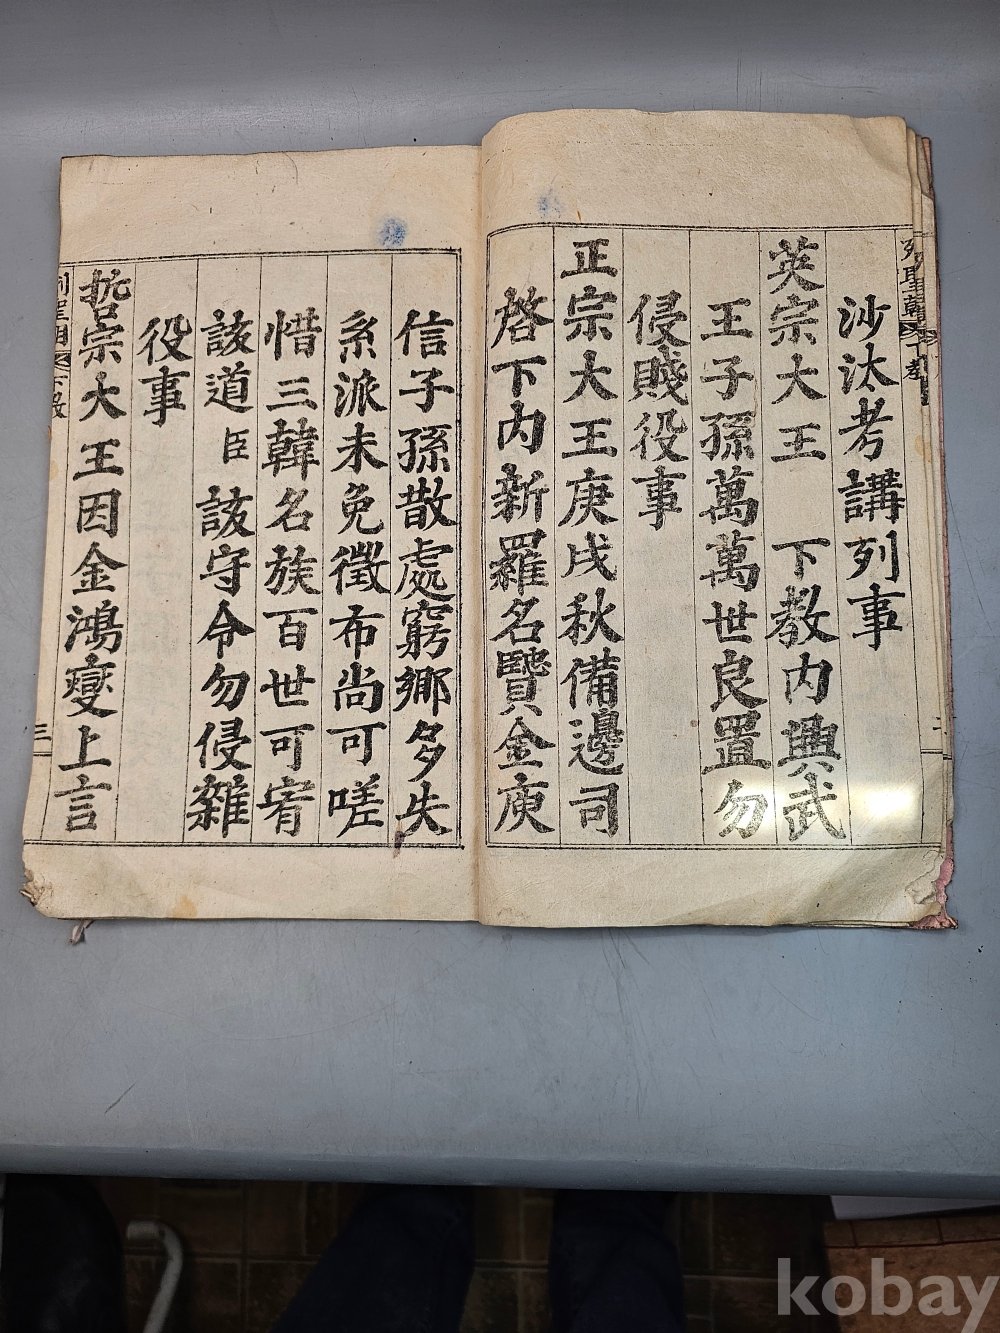 沙汰考講列事
英宗大王 下教内興武
王子孫萬萬世良置勿
侵賤役事
正宗大王庚戌秋備邊司
啓下内新羅名賢金庾
信子孫散處窮鄉多失
系派未免徵布尚可嗟
惜三韓名族百世可宥
該道臣該守令勿侵雜
役事
哲宗大王因金鴻燮上言
三
kobay